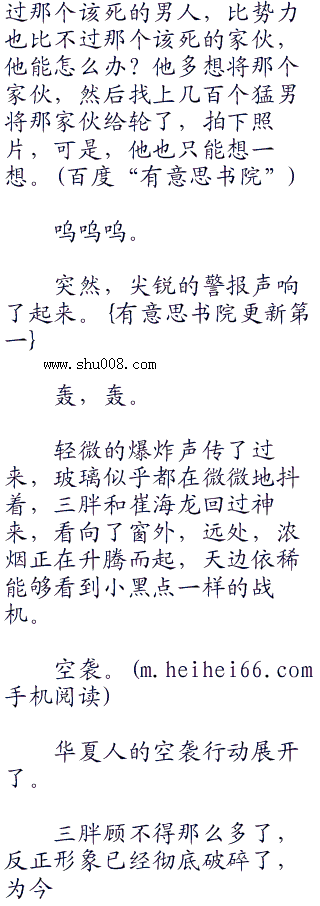 过那个该死的男人，比势力
也比不过那个该死的家伙，
他能怎么办？他多想将那个
家伙，然后找上几百个猛男
将那家伙给轮了，拍下照
片，可是，他也只能想一
想。(百度“有意思书院”)
呜呜呜。
突然，尖锐的警报声响
了起来。{有意思书院更新第
一}
www.shu008.com
轰，轰。
轻微的爆炸声传了过
来，玻璃似乎都在微微地抖
着，三胖和崔海龙回过神
来，看向了窗外，远处，浓
烟正在升腾而起，天边依稀
能够看到小黑点一样的战
机。
空袭。(m.heihei66.com
手机阅读)
华夏人的空袭行动展开
了。
三胖顾不得那么多了，
反正形象已经彻底破碎了，
为今